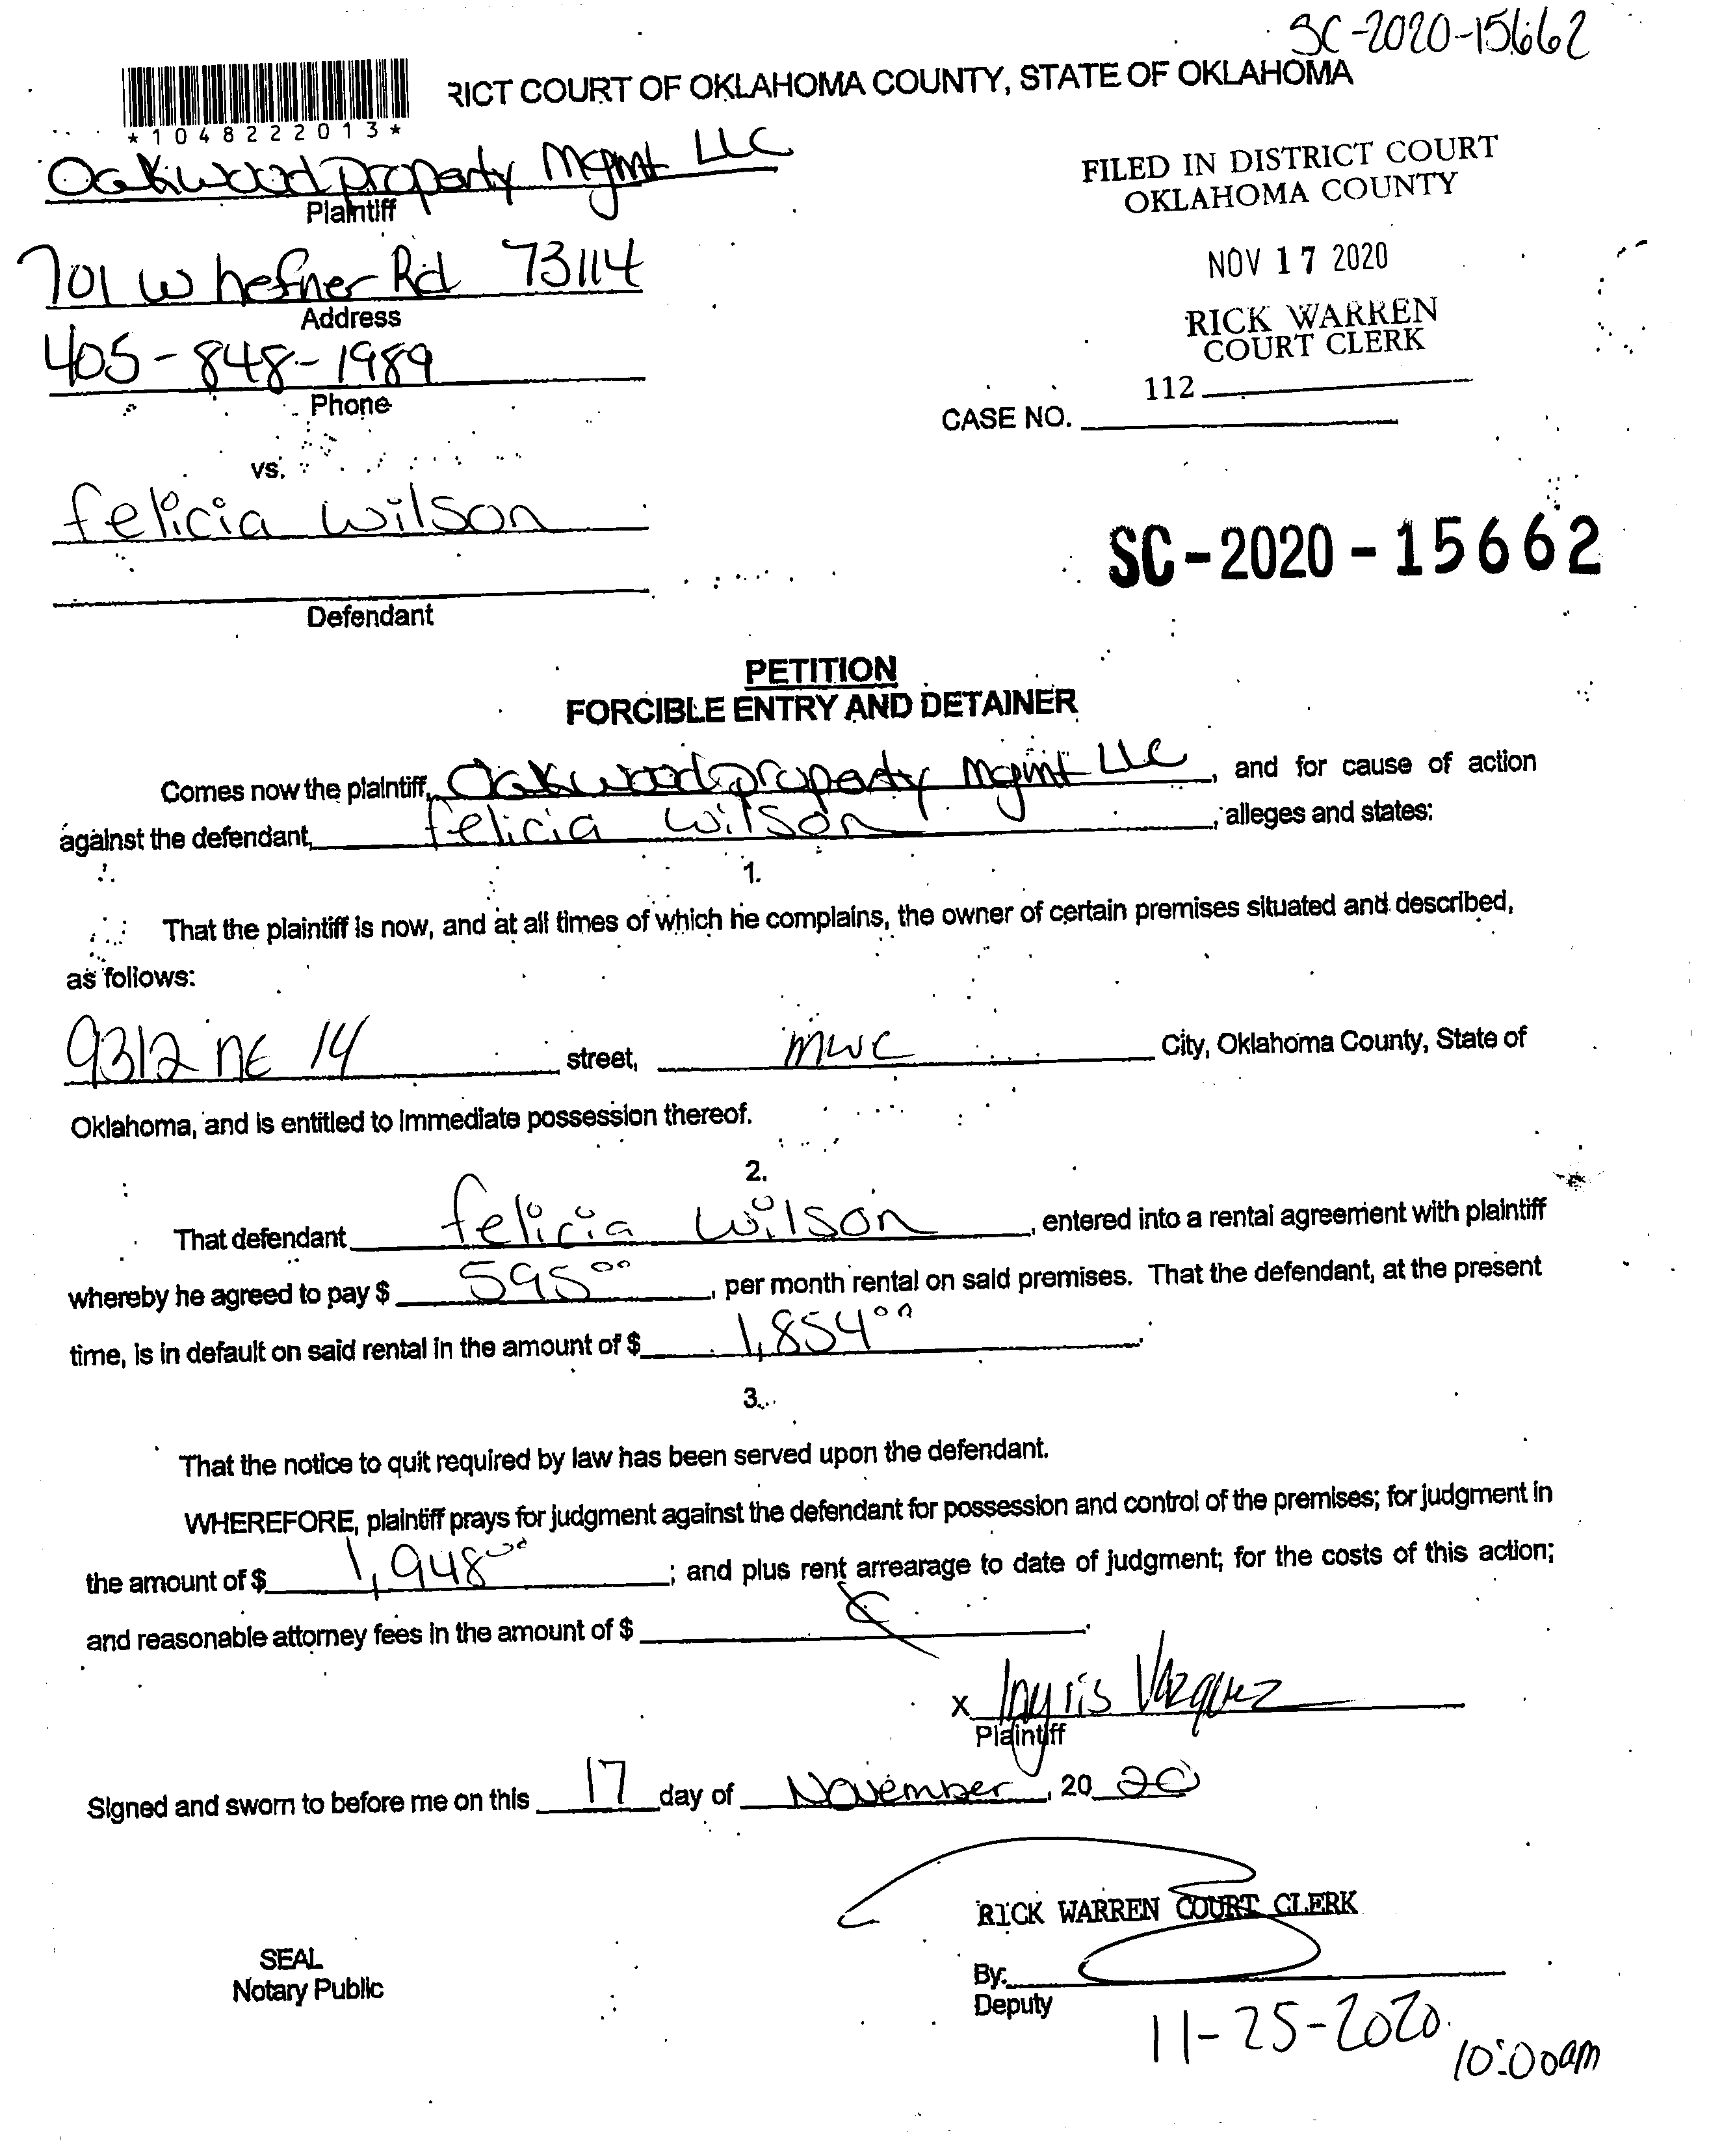 SC-2020-15662
RICT COURT OF OKLAHOMA COUNTY, STATE OF OKLAHOMA
*1048222013*
Oakwood property Mgmt LLC
Plaintiff
FILED IN DISTRICT COURT
OKLAHOMA COUNTY
701 W hefner Rd 73114
Address
NOV 17 2020
405-848-1989
Phone
RICK WARREN
COURT CLERK
112
CASE NO.
vs.
felicia wilson
SC-2020-15662
Defendant
PETITION
FORCIBLE ENTRY AND DETAINER
Comes now the plaintiff, Oakwood property Mgmt LLC, and for cause of action
against the defendant, felicia wilson, alleges and states:
1.
That the plaintiff is now, and at all times of which he complains, the owner of certain premises situated and described,
as follows:
9312 NE 14 street, mwc City, Oklahoma County, State of
Oklahoma, and is entitled to immediate possession thereof.
2.
That defendant felicia wilson, entered into a rental agreement with plaintiff
whereby he agreed to pay $ 595 00, per month rental on said premises. That the defendant, at the present
time, is in default on said rental in the amount of $ 1,854 00.
3.
That the notice to quit required by law has been served upon the defendant.
WHEREFORE, plaintiff prays for judgment against the defendant for possession and control of the premises; for judgment in
the amount of $ 1,948 00; and plus rent arrearage to date of judgment; for the costs of this action;
and reasonable attorney fees in the amount of $
x Ingris Vazquez
Plaintiff
Signed and sworn to before me on this 17 day of November, 20 20
RICK WARREN COURT CLERK
SEAL
Notary Public
By:
Deputy
11-25-2020
10:00am